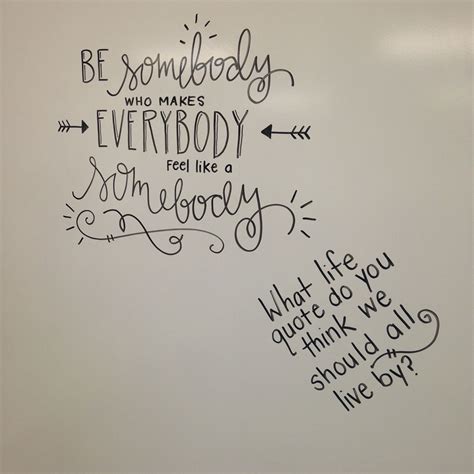 BE somebody
WHO MAKES
EVERYBODY
FEEL like a
somebody
What life
quote do you
think we
should all
live by?